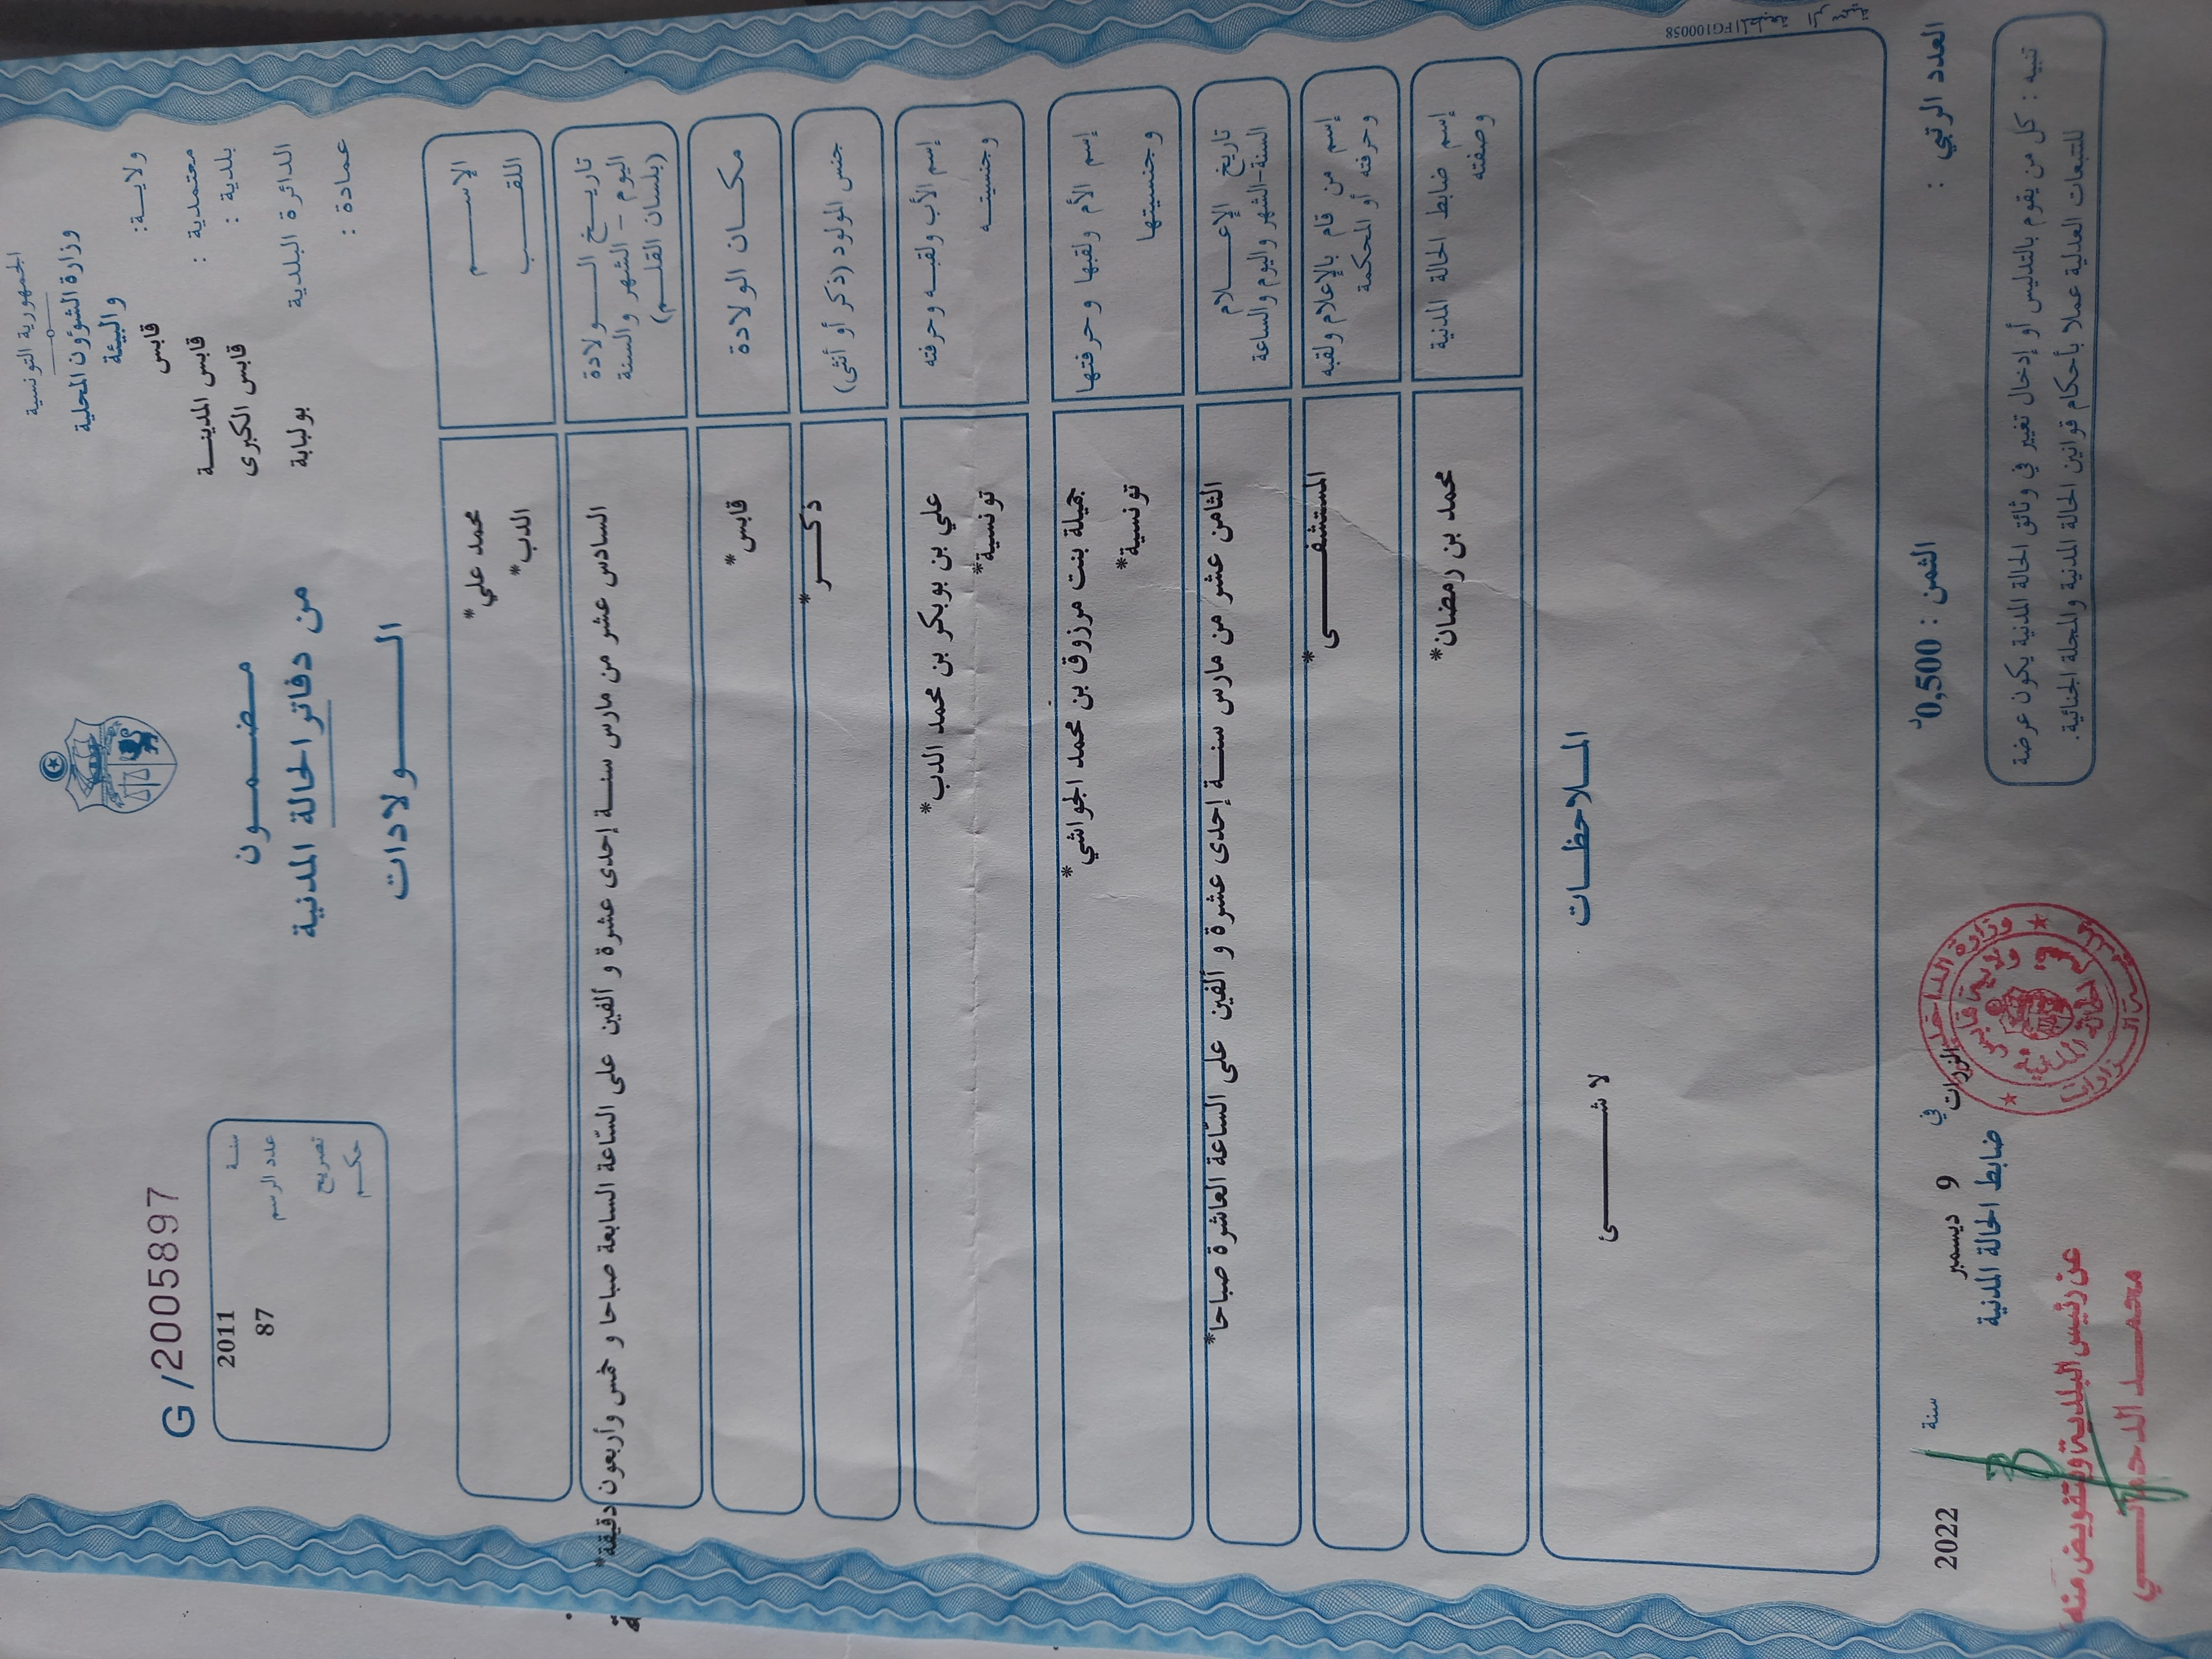 الجمهورية التونسية
وزارة الشؤون المحلية
والبيئة
ولاية: قابس
معتمدية : قابس المدينة
بلدية : قابس الكبرى
الدائرة البلدية بولبابة
عمادة :
مضمون
من دفاتر الحالة المدنية
الولادات
G /2005897
سنة 2011
عدد الرسم 87
تصريح
حكم
الإسم محمد علي*
اللقب الدب*
تاريخ الولادة
اليوم - الشهر والسنة
(بلسان القلم)
السادس عشر من مارس سنة إحدى عشرة و ألفين على السّاعة السابعة صباحا و خمس وأربعون دقيقة*
مكان الولادة قابس*
جنس المولود (ذكر أو أنثى) ذكر*
إسم الأب ولقبه وحرفته علي بن بوبكر بن محمد الدب*
وجنسيته تونسية*
إسم الأم ولقبها وحرفتها جميلة بنت مرزوق بن محمد الجواشي*
وجنسيتها تونسية*
تاريخ الإعلام
السنة-الشهر واليوم والساعة
الثامن عشر من مارس سنة إحدى عشرة و ألفين على السّاعة العاشرة صباحا*
إسم من قام بالإعلام ولقبه
وحرفته أو المحكمة
المستشفى*
إسم ضابط الحالة المدنية
وصفته
محمد بن رمضان*
الملاحظات
لا شئ
FG100058
العدد الرتبي :
الثمن : 0,500د
الزرات في 9 ديسمبر سنة 2022
ضابط الحالة المدنية
تنبيه : كل من يقوم بالتدليس أو إدخال تغيير في وثائق الحالة المدنية يكون عرضة
للتتبعات العدلية عملا بأحكام قوانين الحالة المدنية والمجلة الجنائية.
وزارة الداخلية
ولاية قابس
الحالة المدنية
عن رئيس البلدية وبتفويض منه